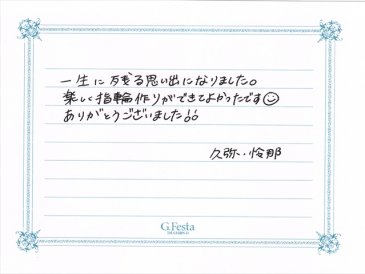 一生に残る思い出になりました。
楽しく指輪作りができてよかったです☺
ありがとうございました!!
久弥・怜那
G.Festa